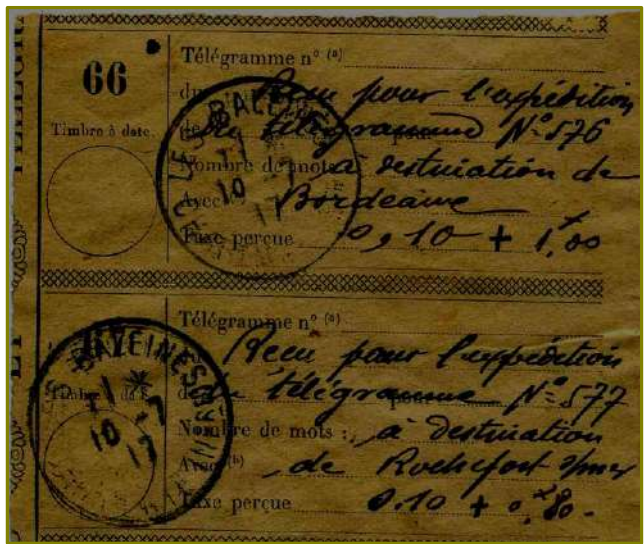 66
Timbre à date.
Télégramme nº (a)
Reçu pour l'expédition
du télégramme Nº 576
Nombre de mots
à destination de
Avec
Bordeaux
Taxe perçue 0,10 + 1,00
LES BALEINES
10
Télégramme nº (a)
Reçu pour l'expédition
du télégramme Nº 577
Nombre de mots : à destination
Avec (b) de Rochefort s/mer
Taxe perçue 0.10 + 0,80.
BALEINES
10
17